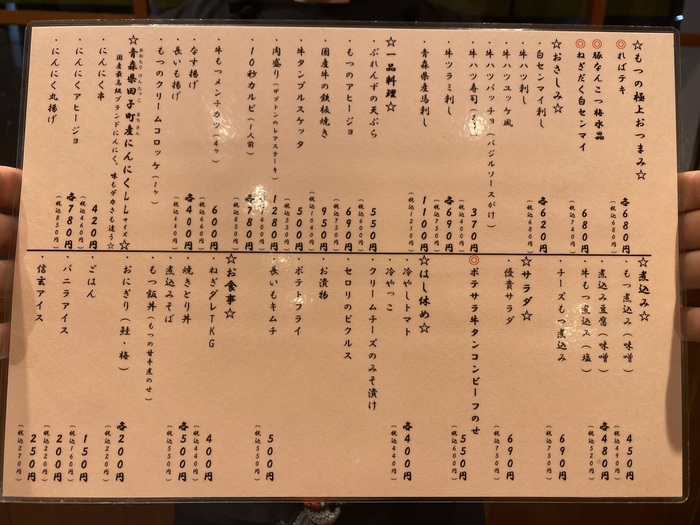 ☆もつの極上おつまみ☆
◎ればテキ
◎豚なんこつ梅水晶
◎ねぎだく白センマイ
各680円
680円
☆おさしみ☆
・白センマイ刺し
・牛ハツ刺し
・牛ハツユッケ風
・牛ハツパッチョ(バジルソースがけ)
各620円
(税込680円)
・牛ハツ寿司
370円
(税込400円)
・牛ツラミ刺し
各690円
(税込750円)
・青森県産馬刺し
1100円
(税込1210円)
☆一品料理☆
・ぷれんずの天ぷら
550円
(税込600円)
・もつのアヒージョ
690円
(税込750円)
・国産牛の鉄板焼き
950円
(税込1040円)
・牛タンブルスケッタ
500円
(税込550円)
・肉盛り(ザブトンのレアステーキ)
1280円
(税込1400円)
・10秒カルビ(1人前)
各780円
(税込850円)
・牛もつメンチカツ(4ヶ)
600円
(税込660円)
・なす揚げ
・長いも揚げ
各400円
(税込440円)
・もつのクリームコロッケ(1ヶ)
☆青森県田子町産にんにくLLサイズ☆
あおもり けん たっこ まちさん
国産最高級ブランドにんにく。味もデカさも違う☆
・にんにく串
420円
(税込460円)
・にんにくアヒージョ
・にんにく丸揚げ
各780円
(税込850円)
☆煮込み☆
・もつ煮込み(味噌)
450円
(税込490円)
・煮込み豆腐(味噌)
・牛もつ煮込み(塩)
各480円
(税込520円)
・チーズもつ煮込み
690円
(税込750円)
☆サラダ☆
・優貴サラダ
690円
(税込750円)
◎ポテサラ牛タンコンビーフのせ
550円
(税込600円)
☆はし休め☆
・冷やしトマト
・冷やっこ
各400円
(税込440円)
・クリームチーズのみそ漬け
・セロリのピクルス
・お漬物
・ポテトフライ
・長いもキムチ
500円
(税込550円)
☆お食事☆
・ねぎダレTKG
400円
(税込440円)
・焼きとり丼
・煮込みそば
各500円
(税込550円)
・もつ飯丼(もつの甘辛煮のせ)
・おにぎり(鮭・梅)
各200円
(税込220円)
・ごはん
150円
(税込160円)
・バニラアイス
200円
(税込220円)
・信玄アイス
250円
(税込270円)